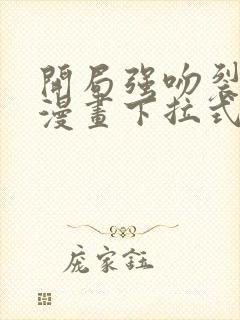 開局强吻裂
漫畫下拉式
庞家鈺